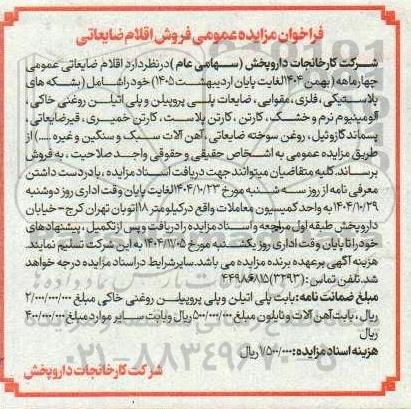 فراخوان مزایده عمومی فروش اقلام ضایعاتی
شرکت کارخانجات داروپخش (سهامی عام) در نظر دارد اقلام ضایعاتی عمومی
چهار ماهه (بهمن ۱۴۰۴ لغایت پایان اردیبهشت ۱۴۰۵) خود را شامل (بشکه های
پلاستیکی، فلزی، مقوایی، ضایعات پلی پروپیلن و پلی اتیلن روغنی خاکی،
آلومینیوم نرم و خشک، کارتن، کارتن پلاست، کارتن خمیری، قیر ضایعاتی،
پسماند گازوئیل، روغن سوخته ضایعاتی، آهن آلات سبک و سنگین و غیره .....) از
طریق مزایده عمومی به اشخاص حقیقی و حقوقی واجد صلاحیت، به فروش
برساند. کلیه متقاضیان میتوانند جهت دریافت اسناد مزایده، با در دست داشتن
معرفی نامه از روز سه شنبه مورخ ۱۴۰۴/۱۰/۲۳ لغایت پایان وقت اداری روز دوشنبه
۱۴۰۴/۱۰/۲۹ به واحد کمیسیون معاملات واقع در کیلومتر ۱۸ اتوبان تهران کرج-خیابان
داروپخش طبقه اول مراجعه و اسناد مزایده را دریافت و پس از تکمیل، پیشنهادهای
خود را تا پایان وقت اداری روز یکشنبه مورخ ۱۴۰۴/۱۱/۰۵ به این شرکت تسلیم نمایند.
هزینه آگهی بر عهده برنده مزایده می باشد. سایر شرایط در اسناد مزایده درجه خواهد
شد. تلفن تماس: (۳۲۹۳) ۴۴۹۸۶۸۱۵
مبلغ ضمانت نامه: بابت پلی اتیلن و پلی پروپیلن روغنی خاکی مبلغ ۲/۰۰۰/۰۰۰/۰۰۰
ریال، بابت آهن آلات و نایلون مبلغ ۵۰۰/۰۰۰/۰۰۰ ریال و بابت سایر موارد مبلغ ۴۰۰/۰۰۰/۰۰۰
ریال
هزینه اسناد مزایده: ۱/۵۰۰/۰۰۰ ریال
شرکت کارخانجات داروپخش
۰۲۱-۸۸۳۴۹۶۷۰-۵